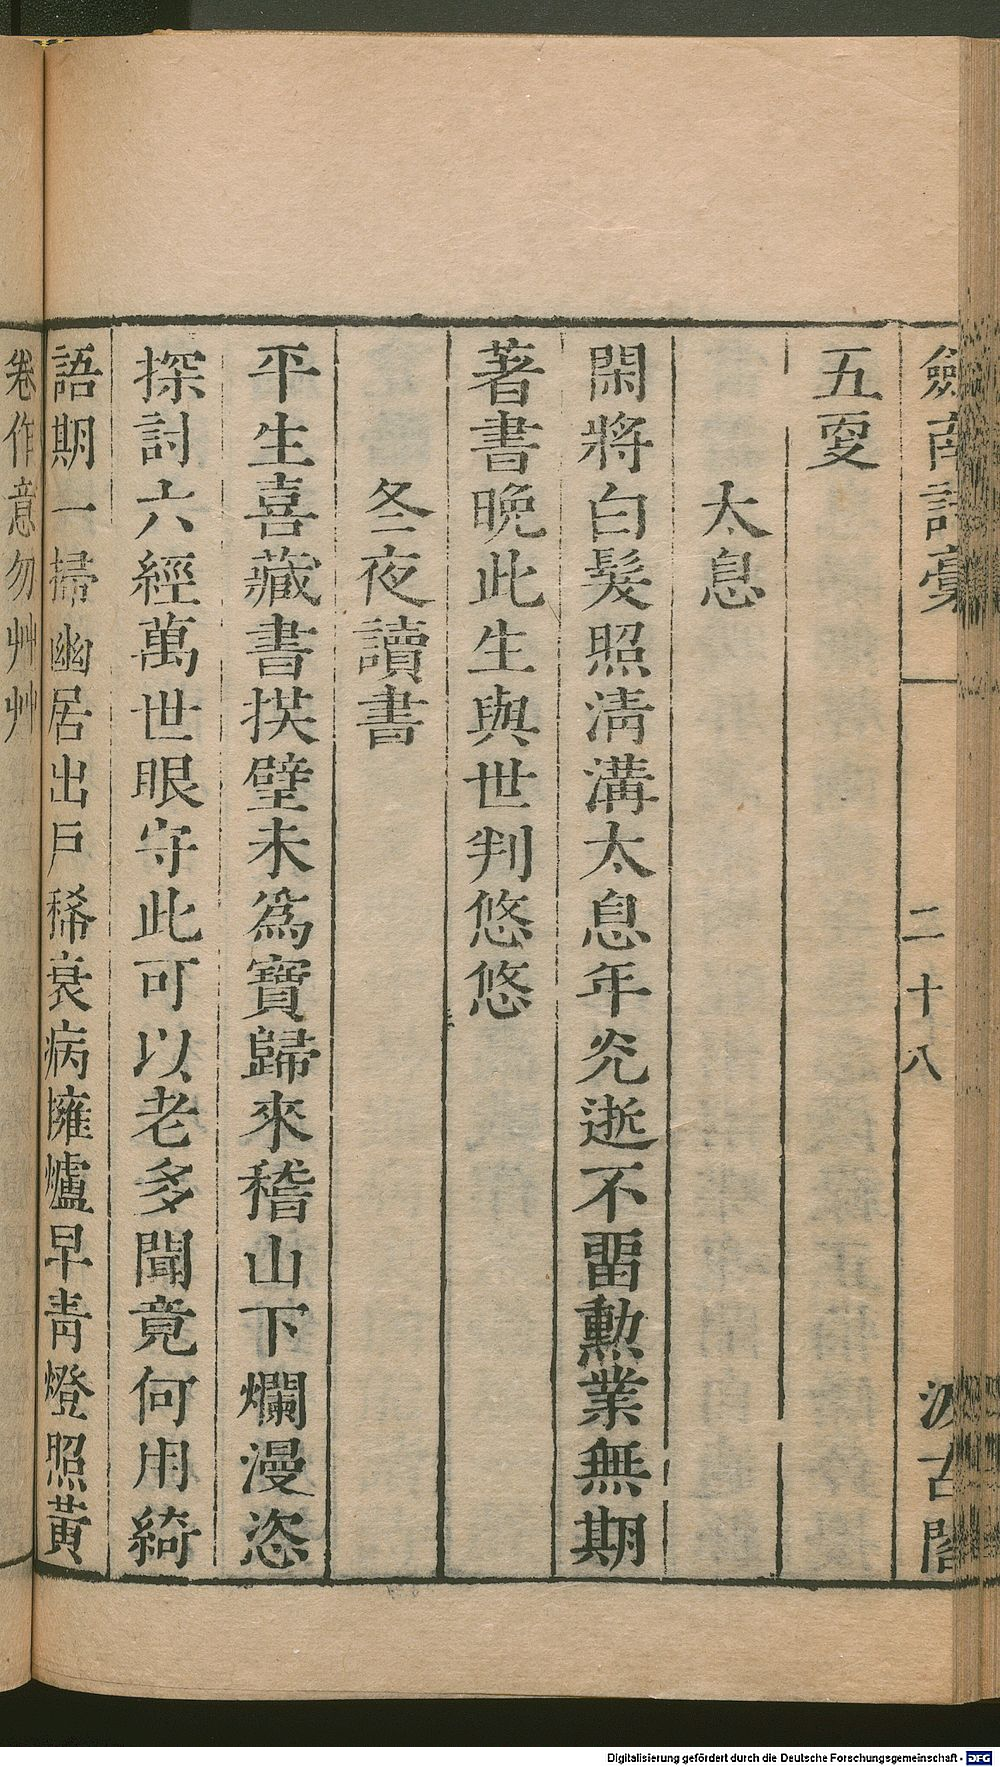 劍南詩稾 二十八 汲古閣
五更
太息
閑將白髮照淸溝太息年光逝不畱勲業無期
著書晚此生與世判悠悠
冬夜讀書
平生喜藏書拱璧未爲寶歸來稽山下爛漫恣
探討六經萬世眼守此可以老多聞竟何用綺
語期一掃幽居出戸稀衰病擁爐早靑燈照黃
卷作意勿艸艸
Digitalisierung gefördert durch die Deutsche Forschungsgemeinschaft - DFG